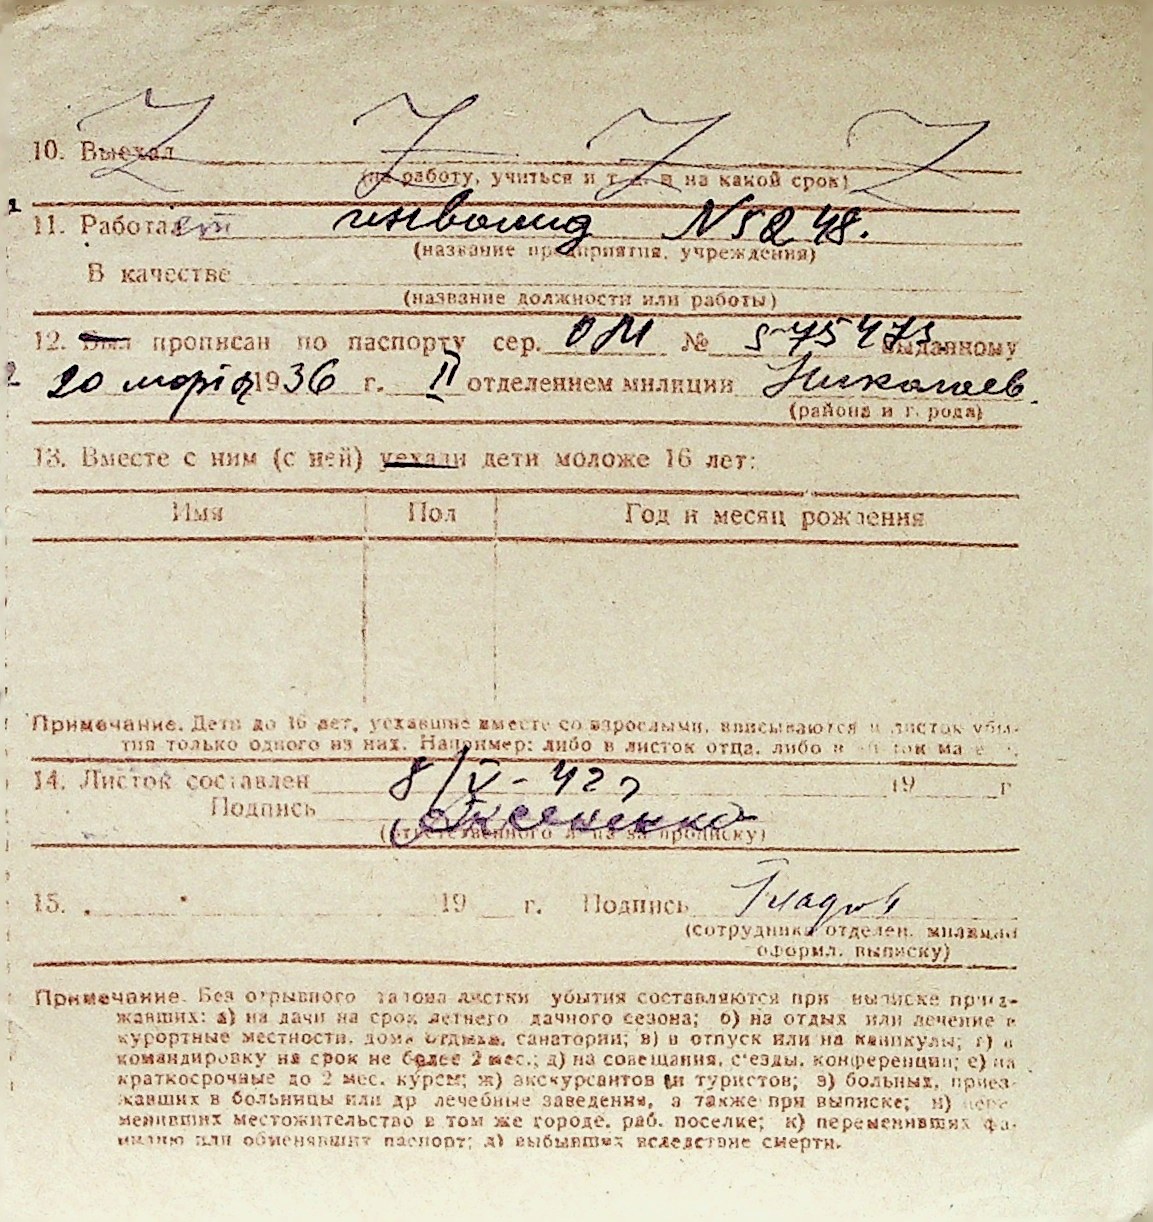 10. Выехал
(на работу, учиться и т. д. и на какой срок)
11. Работает инвалид N 5248.
(название предприятия, учреждения)
В качестве
(название должности или работы)
12. Был прописан по паспорту сер. ОМ № 575473 выданному
20 марта 1936 г. II отделением милиции Николаев
(района и города)
13. Вместе с ним (с ней) уехали дети моложе 16 лет:
Имя Пол Год и месяц рождения
Примечание. Дети до 16 лет, уехавшие вместе со взрослыми, вписываются в листок убы-
тия только одного из них. Например: либо в листок отца, либо в
14. Листок составлен 8/V - 42 г 19 г
Подпись Аксененко
(ответственного за прописку)
15. 19 г. Подпись
(сотрудника отделен. милиции
оформл. выписку)
Примечание. Без отрывного талона листки убытия составляются при выписке приез-
жавших: а) на дачи на срок летнего дачного сезона; б) на отдых или лечение в
курортные местности, дома отдыха, санатории; в) в отпуск или на каникулы; г) в
командировку на срок не более 2 мес.; д) на совещания, съезды, конференции; е) на
краткосрочные до 2 мес. курсы; ж) экскурсантов и туристов; з) больных, приез-
жавших в больницы или др лечебные заведения, а также при выписке; и) пере-
менивших местожительство в том же городе, раб. поселке; к) переменивших фа-
милию или обменявших паспорт; л) выбывших вследствие смерти.